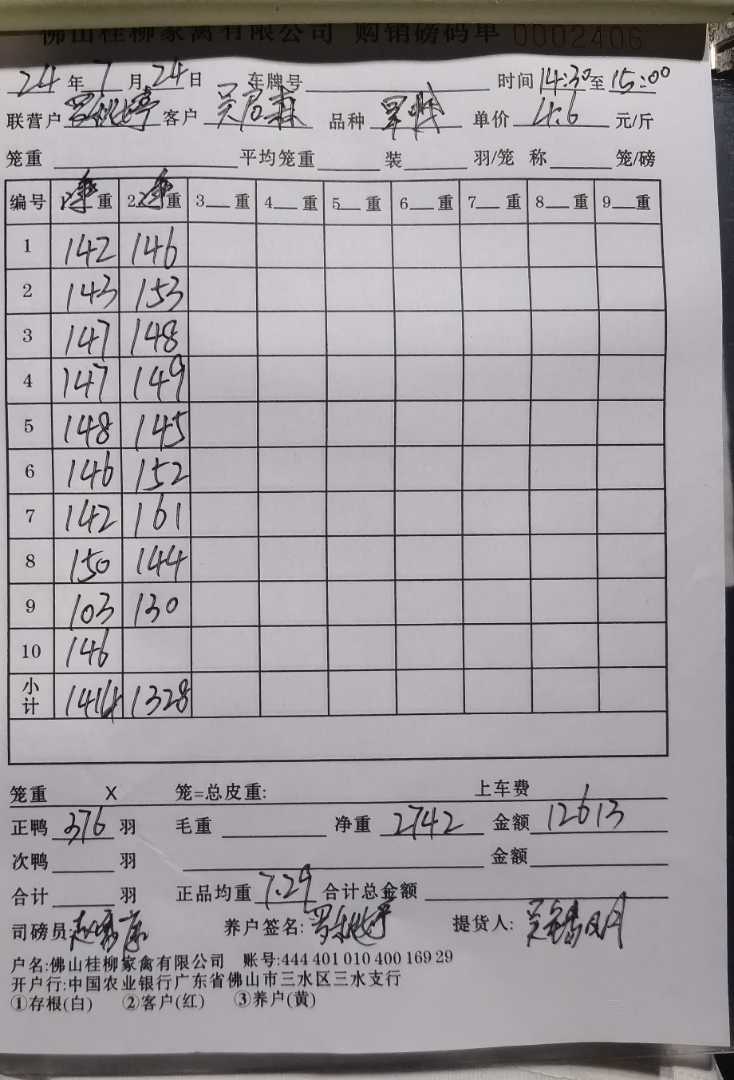 佛山桂柳家禽有限公司 购销磅码单 0002406
24年7月24日 车牌号 时间14:30至15:00
联营户 客户 吴启森 品种 单价 4.6 元/斤
笼重 平均笼重 装 羽/笼 称 笼/磅
编号 净重 2净重 3 重 4 重 5 重 6 重 7 重 8 重 9 重
1 142 146
2 143 153
3 147 148
4 147 149
5 148 145
6 146 152
7 142 161
8 150 144
9 103 130
10 146
小计 1414 1328
笼重 X 笼=总皮重: 上车费
正鸭 376 羽 毛重 净重 2742 金额 12613
次鸭 羽 金额
合计 羽 正品均重 7.29 合计总金额
司磅员: 养户签名: 提货人:
户名:佛山桂柳家禽有限公司 账号:444 401 010 400 169 29
开户行:中国农业银行广东省佛山市三水区三水支行
①存根(白) ②客户(红) ③养户(黄)